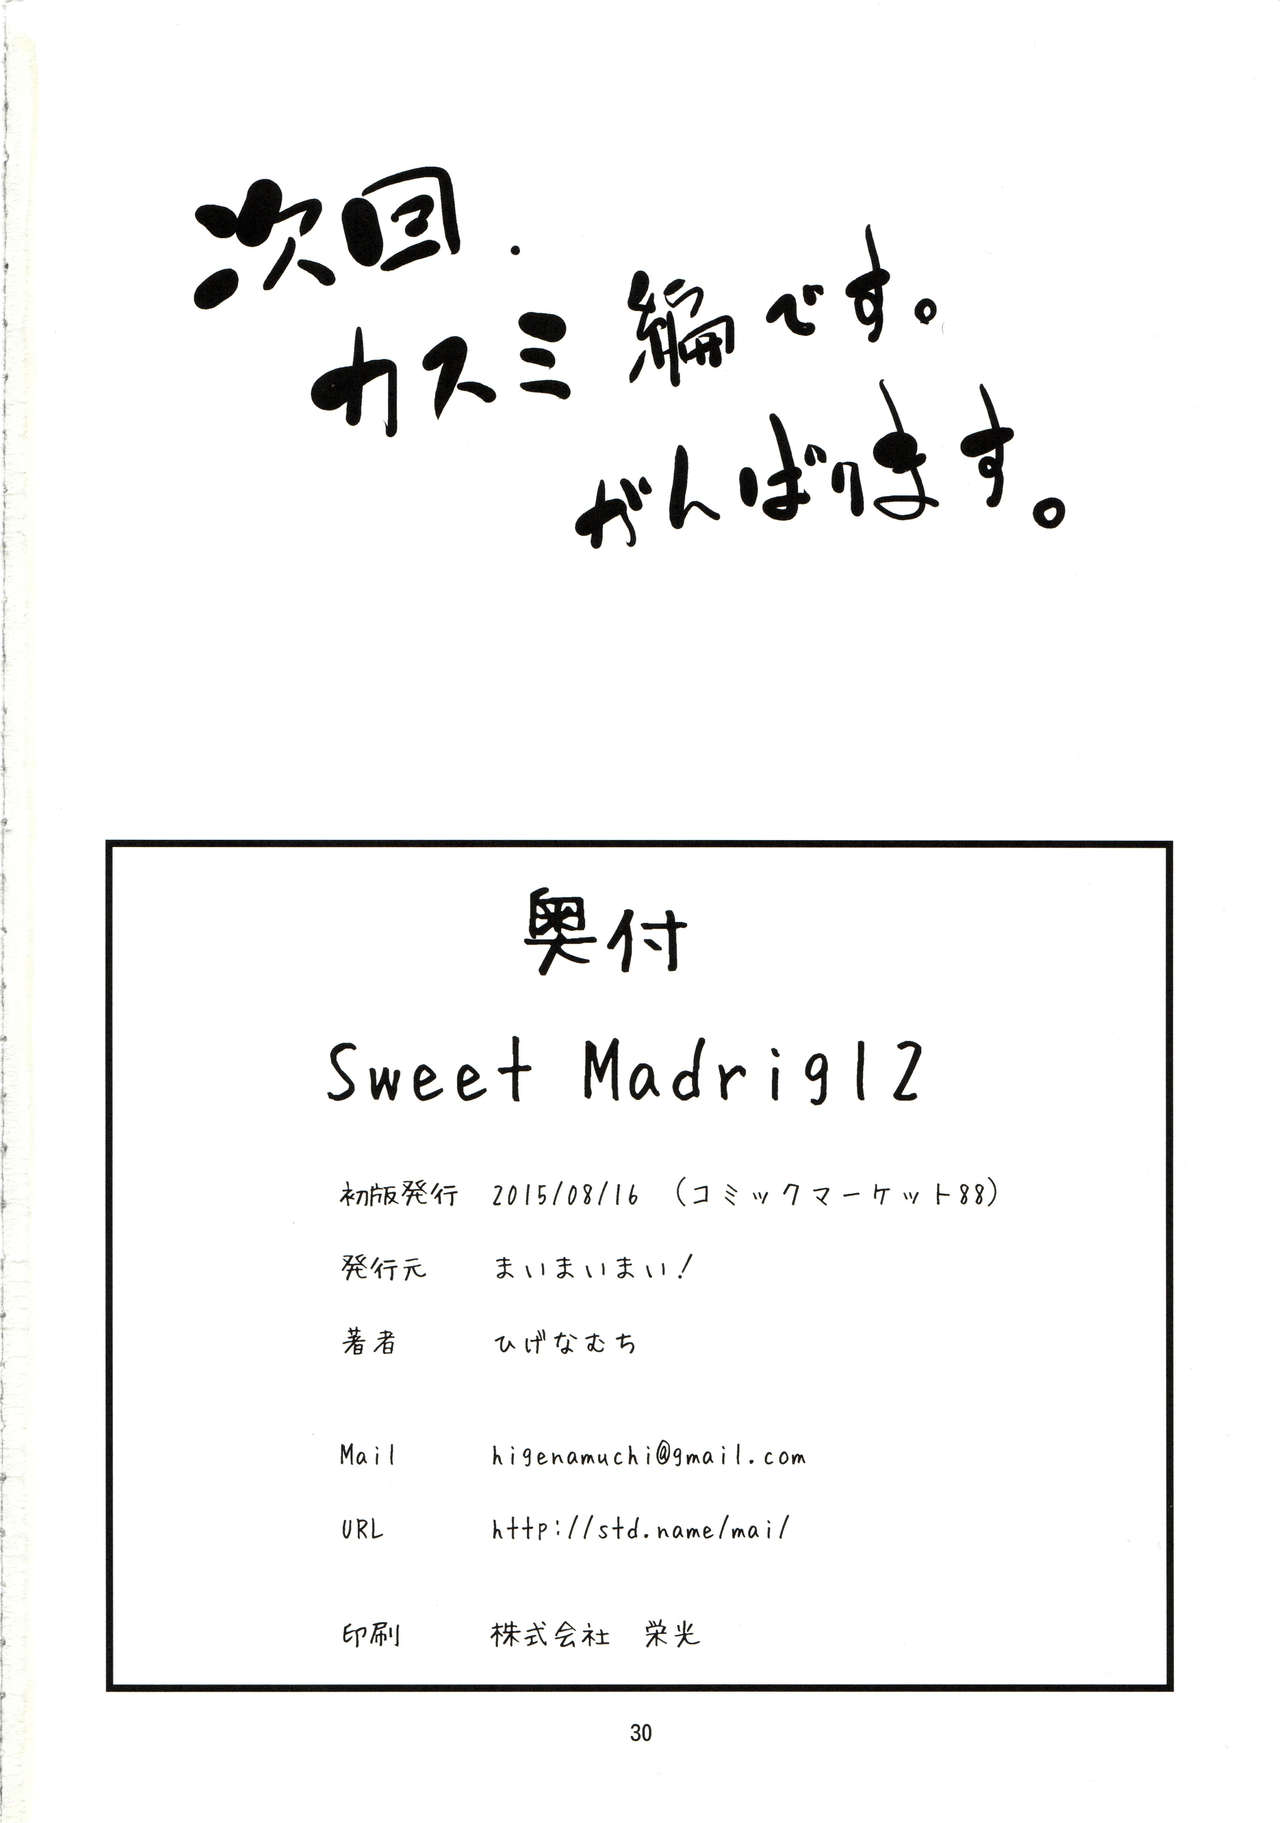 次回.
カスミ編です。
がんばります。
奥付
Sweet Madrigl2
初版発行 2015/08/16 (コミックマーケット88)
発行元 まいまいまい!
著者 ひげなむち
Mail higenamuchi@gmail.com
URL http://std.name/mai/
印刷 株式会社 栄光
30